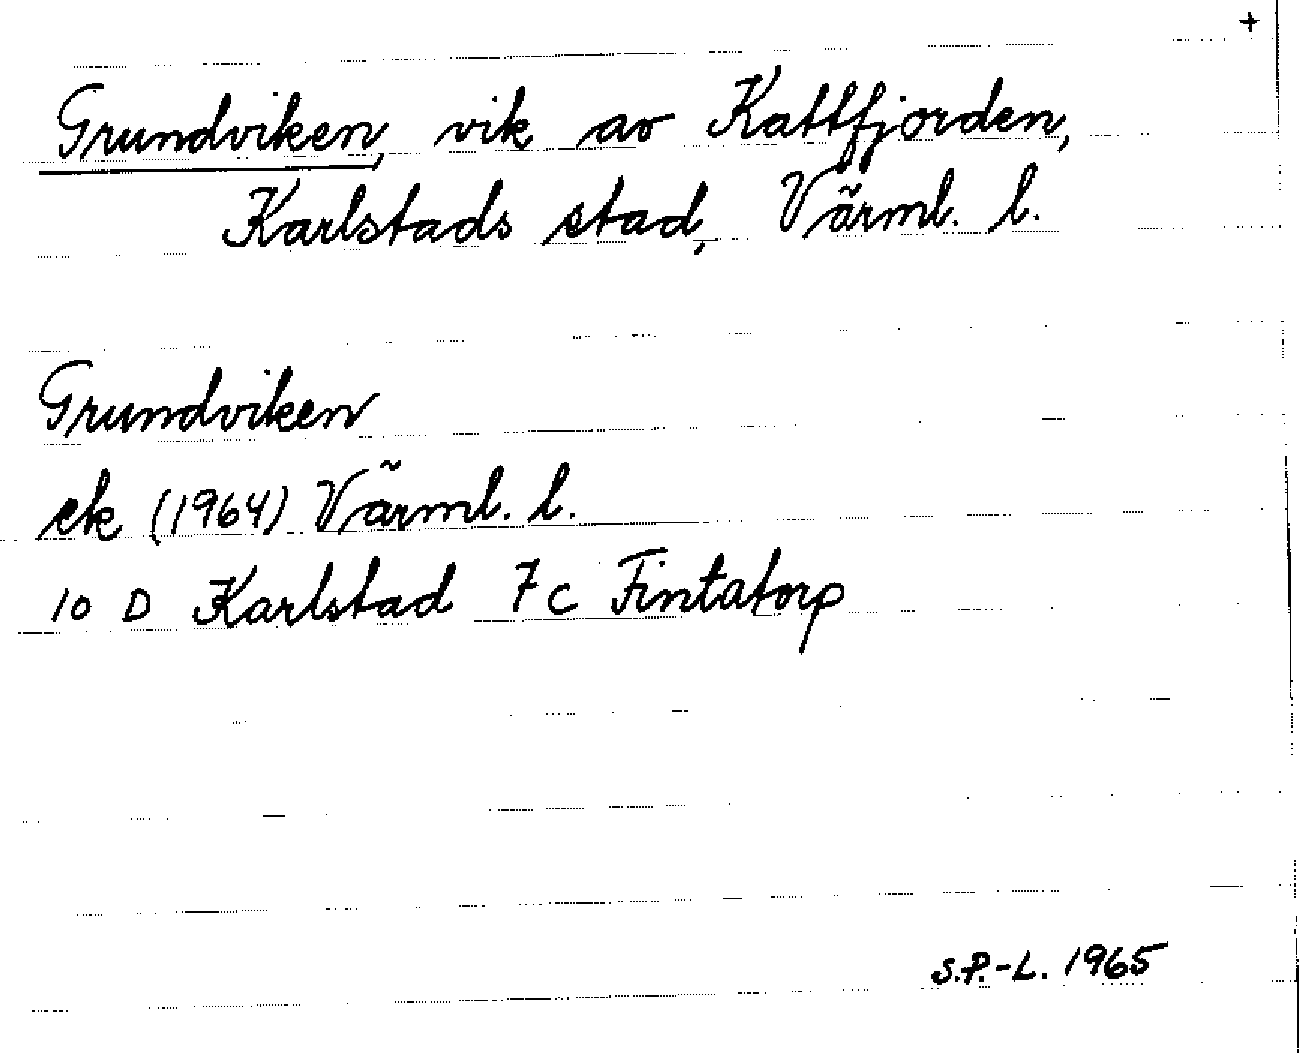 +
Grundviken, vik av Kattfjorden,
Karlstads stad, Värml. l.
Grundviken
ek (1964) Värml. l.
10 D Karlstad 7 c Fintatorp
S.P.-L. 1965